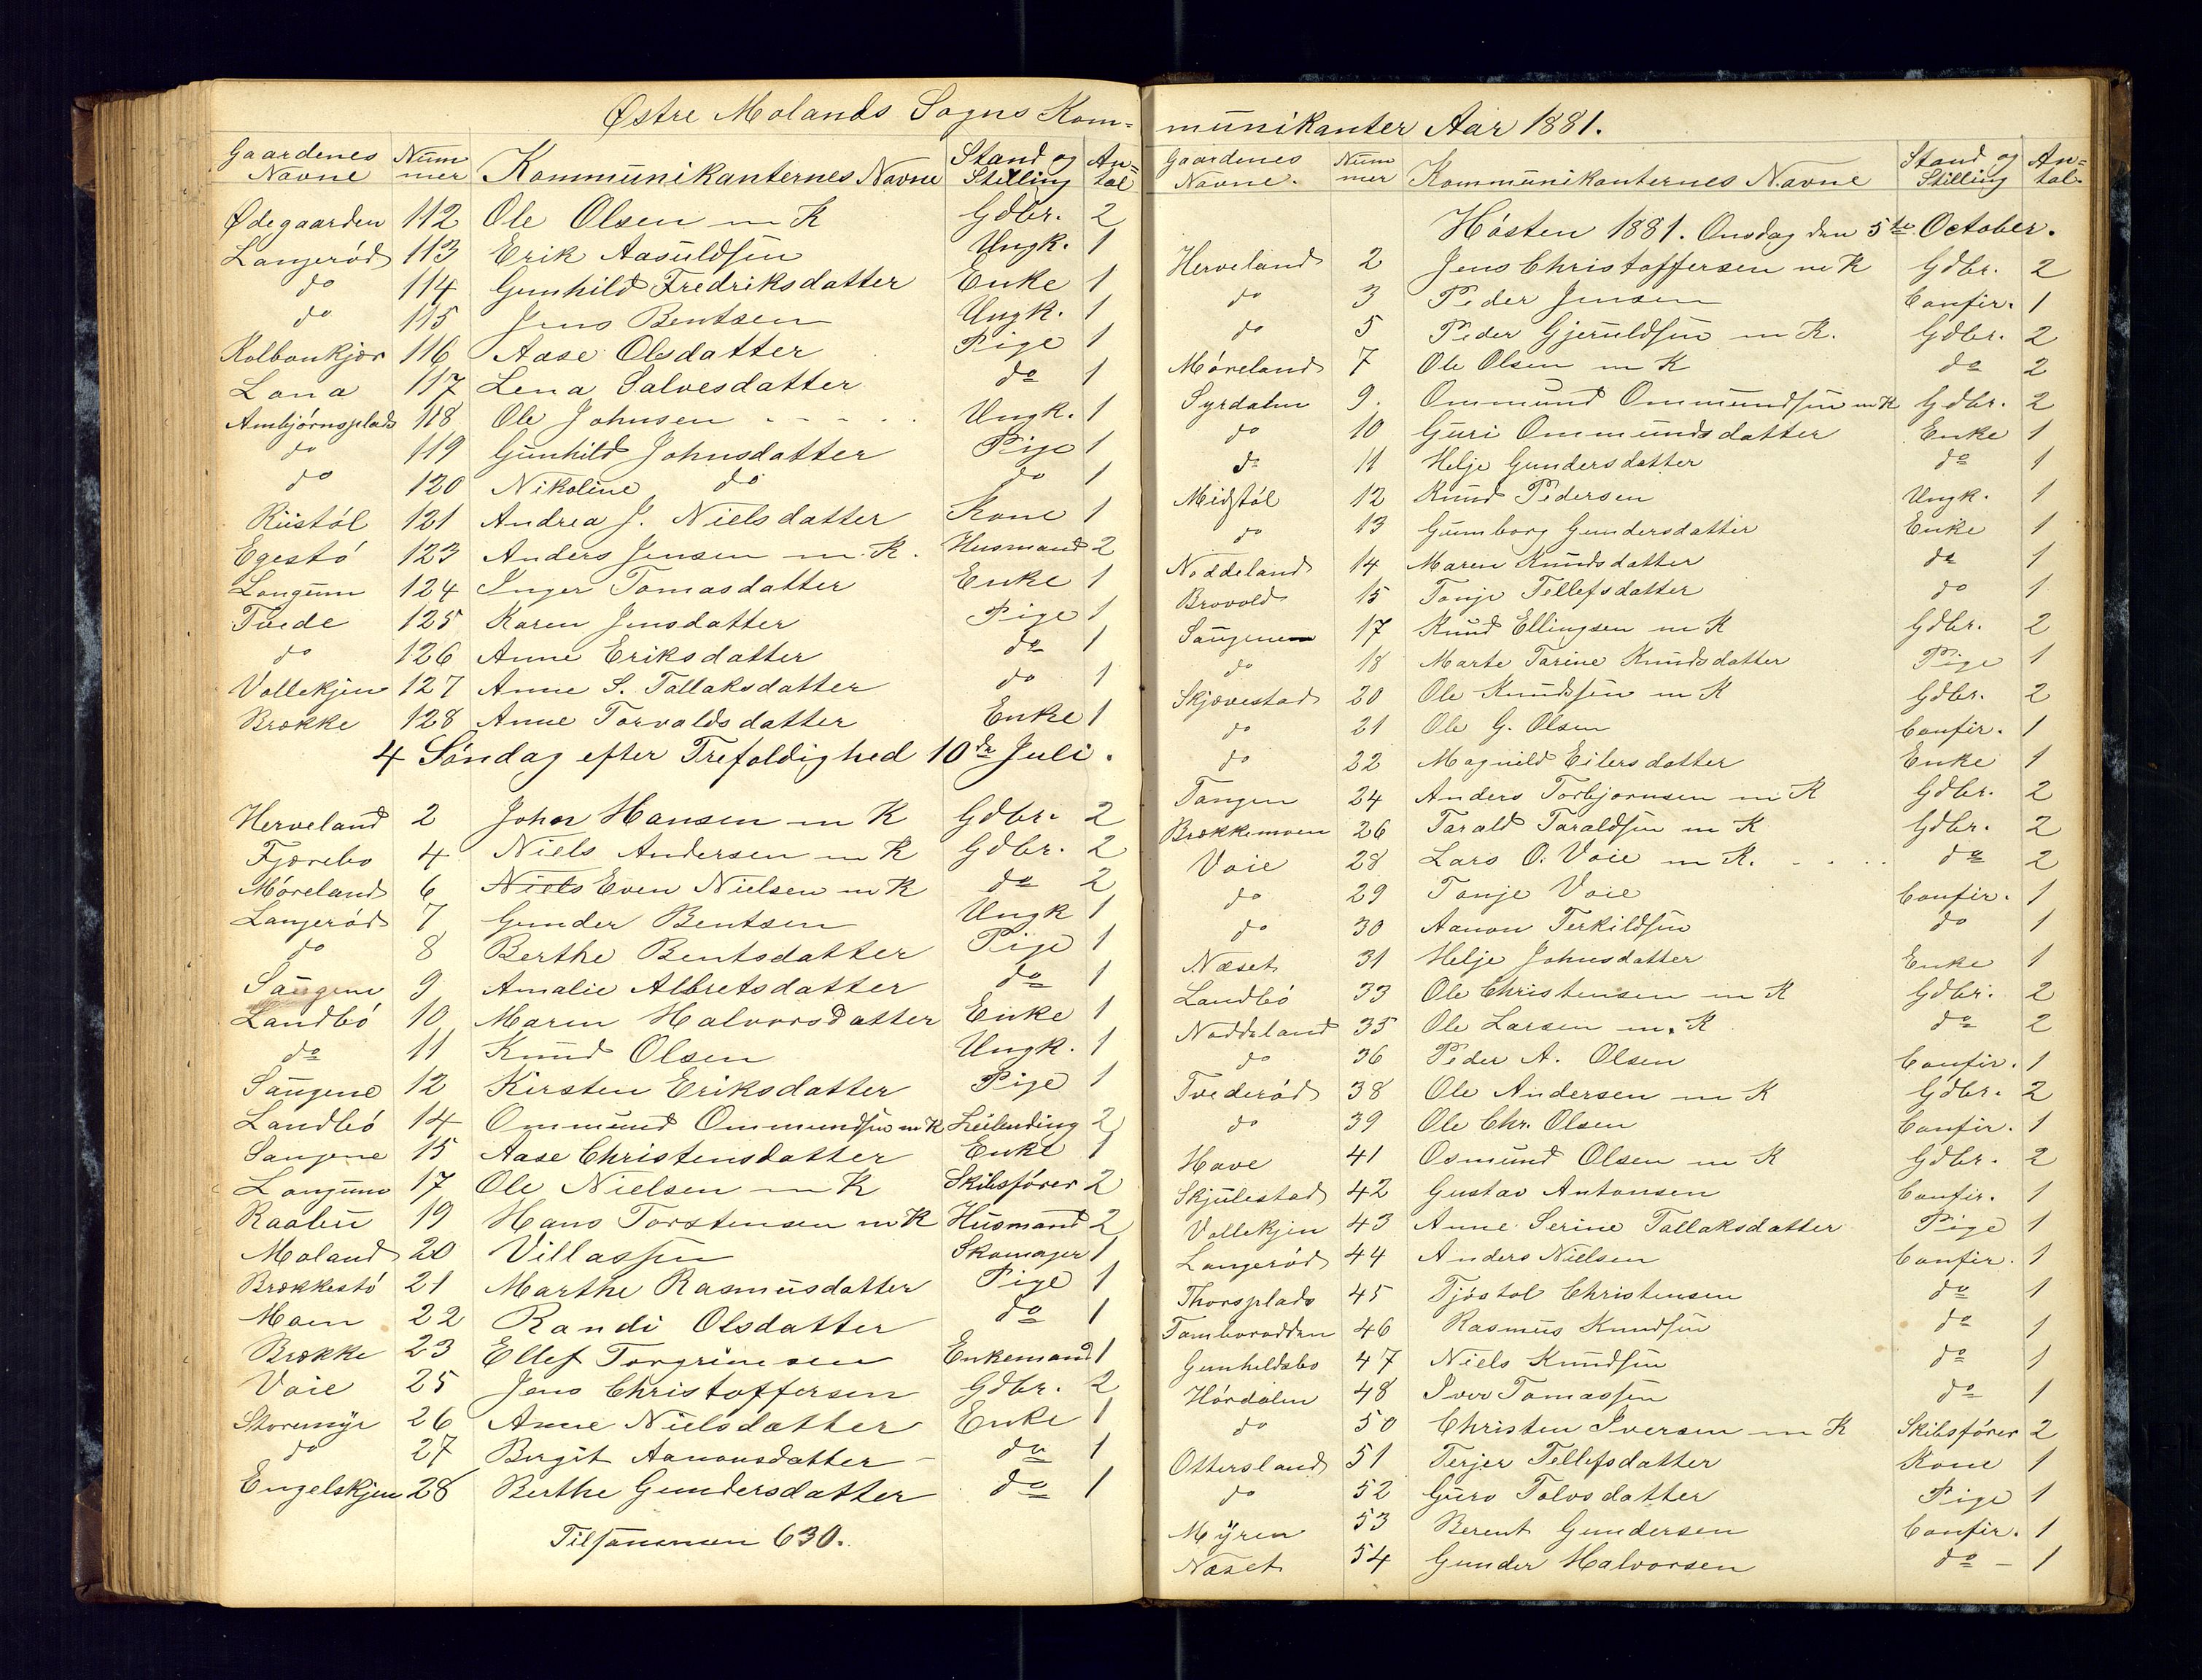 Østre Molands Sogns Kom=
Gaardenes Navne | Num mer | Kommunikanternes Navne | Stand og Stilling | An= tal
Ødegaarden 112 Ole Olsen m K Gdbr. 2
Langerød 113 Erik Aasuldsen Ungk. 1
do 114 Gunhild Fredriksdatter Enke 1
do 115 Jens Bentsen Ungk. 1
Kolbonkjær 116 Aase Olsdatter Pige 1
Lona 117 Lena Salvesdatter do 1
Ambjørnsplads 118 Ole Johnsen Ungk. 1
do 119 Gunhild Johnsdatter Pige 1
do 120 Nikoline do do 1
Riistøl 121 Andrea J. Nielsdatter Kone 1
Egestø 123 Anders Jensen m. K. Husmand 2
Longum 124 Inger Tomasdatter Enke 1
Tvede 125 Karen Jensdatter Pige 1
do 126 Anne Eriksdatter do 1
Vollekjen 127 Anne S. Tallaksdatter do 1
Brække 128 Anne Torvaldsdatter Enke 1
4 Søndag efter Trefoldighed 10de Juli.
Herveland 2 John Hansen m K Gdbr. 2
Fjærebo 4 Niels Andersen m K Gdbr. 2
Møreland 6 Niels Even Nielsen m K do 2
Langerød 7 Gunder Bentsen Ungk 1
do 8 Berthe Bentsdatter Pige 1
Saugene 9 Amalie Albretsdatter do 1
Landbø 10 Maren Halvorsdatter Enke 1
do 11 Knud Olsen Ungk. 1
Saugene 12 Kirsten Eriksdatter Pige 1
Landbø 14 Ommund Ommundsen m K Leilending 2
Sangene 15 Aase Christensdatter Enke 1
Longum 17 Ole Nielsen m K Skibsfører 2
Raabu 19 Hans Torstensen m K Husmand 2
Moland 20 Villassen Skomager 1
Brækkestø 21 Marthe Rasmusdatter Pige 1
Moen 22 Randi Olsdatter do 1
Brække 23 Ellef Torgrimsen Enkemand 1
Voie 25 Jens Christoffersen Gdbr. 2
Storemyr 26 Anne Nielsdatter Enke 1
do 27 Birgit Aanonsdatter do 1
Engelskjen 28 Berthe Gundersdatter do 1
Tilsammen 630.
munikanter Aar 1881.
Gaardenes Navne. | Num mer | Kommunikanternes Navne | Stand og Stilling | An= tal.
Høsten 1881. Onsdag den 5te October.
Herveland 2 Jens Christoffersen m K Gdbr. 2
do 3 Peder Jensen Confir. 1
do 5 Peder Gjeruldsen m K. Gdbr. 2
Møreland 7 Ole Olsen m K do 2
Syrdalen 9. Ommund Ommundsen m K Gdbr. 2
do 10 Guri Ommundsdatter Enke 1
do 11 Helje Gundersdatter do 1
Midstøl 12 Knud Pedersen Ungk. 1
do 13 Gunborg Gundersdatter Enke 1
Noddeland 14 Maren Knudsdatter do 1
Brovold 15 Tonje Tellefsdatter do 1
Saugene 17 Knud Ellingsen m K Gdbr. 2
do 18 Marte Tarine Knudsdatter Pige 1
Skjævestad 20 Ole Knudsen m K Gdbr. 2
do 21 Ole G. Olsen Confir. 1
do 22 Magnild Eilersdatter Enke 1
Tangen 24 Anders Torbjørnsen m K Gdbr. 2
Brækkemoen 26 Tarald Taraldsen m K Gdbr. 2
Voie 28 Lars O. Voie m K. do 2
do 29 Tonje Voie Confir. 1
do 30 Aanon Terkildsen do 1
Næset 31 Helje Johnsdatter Enke 1
Landbø 33 Ole Christensen m K Gdbr. 2
Noddeland 35 Ole Larsen m. K do 2
do 36 Peder A. Olsen Confir. 1
Tvederød 38 Ole Andersen m K Gdbr. 2
do 39 Ole Chr. Olsen Confir. 1
Have 41 Osmund Olsen m K Gdbr. 2
Skjulestad 42 Gustav Antonsen Confir. 1
Vollekjen 43 Anne Serine Tallaksdatter Pige 1
Langerød 44 Anders Nielsen Confir. 1
Thorsplads 45 Tjøstol Christensen do 1
Tamborodden 46 Rasmus Knudsen do 1
Gunhildsbo 47 Niels Knudsen do 1
Hørdalen 48 Iver Tomassen do 1
do 50 Christen Iversen m K Skibsfører 2
Ottersland 51 Terjer Tellefsdatter Kone 1
do 52 Guro Tolvsdatter Pige 1
Myren 53 Berent Gundersen Confir. 1
Næset 54 Gunder Halvorsen do 1